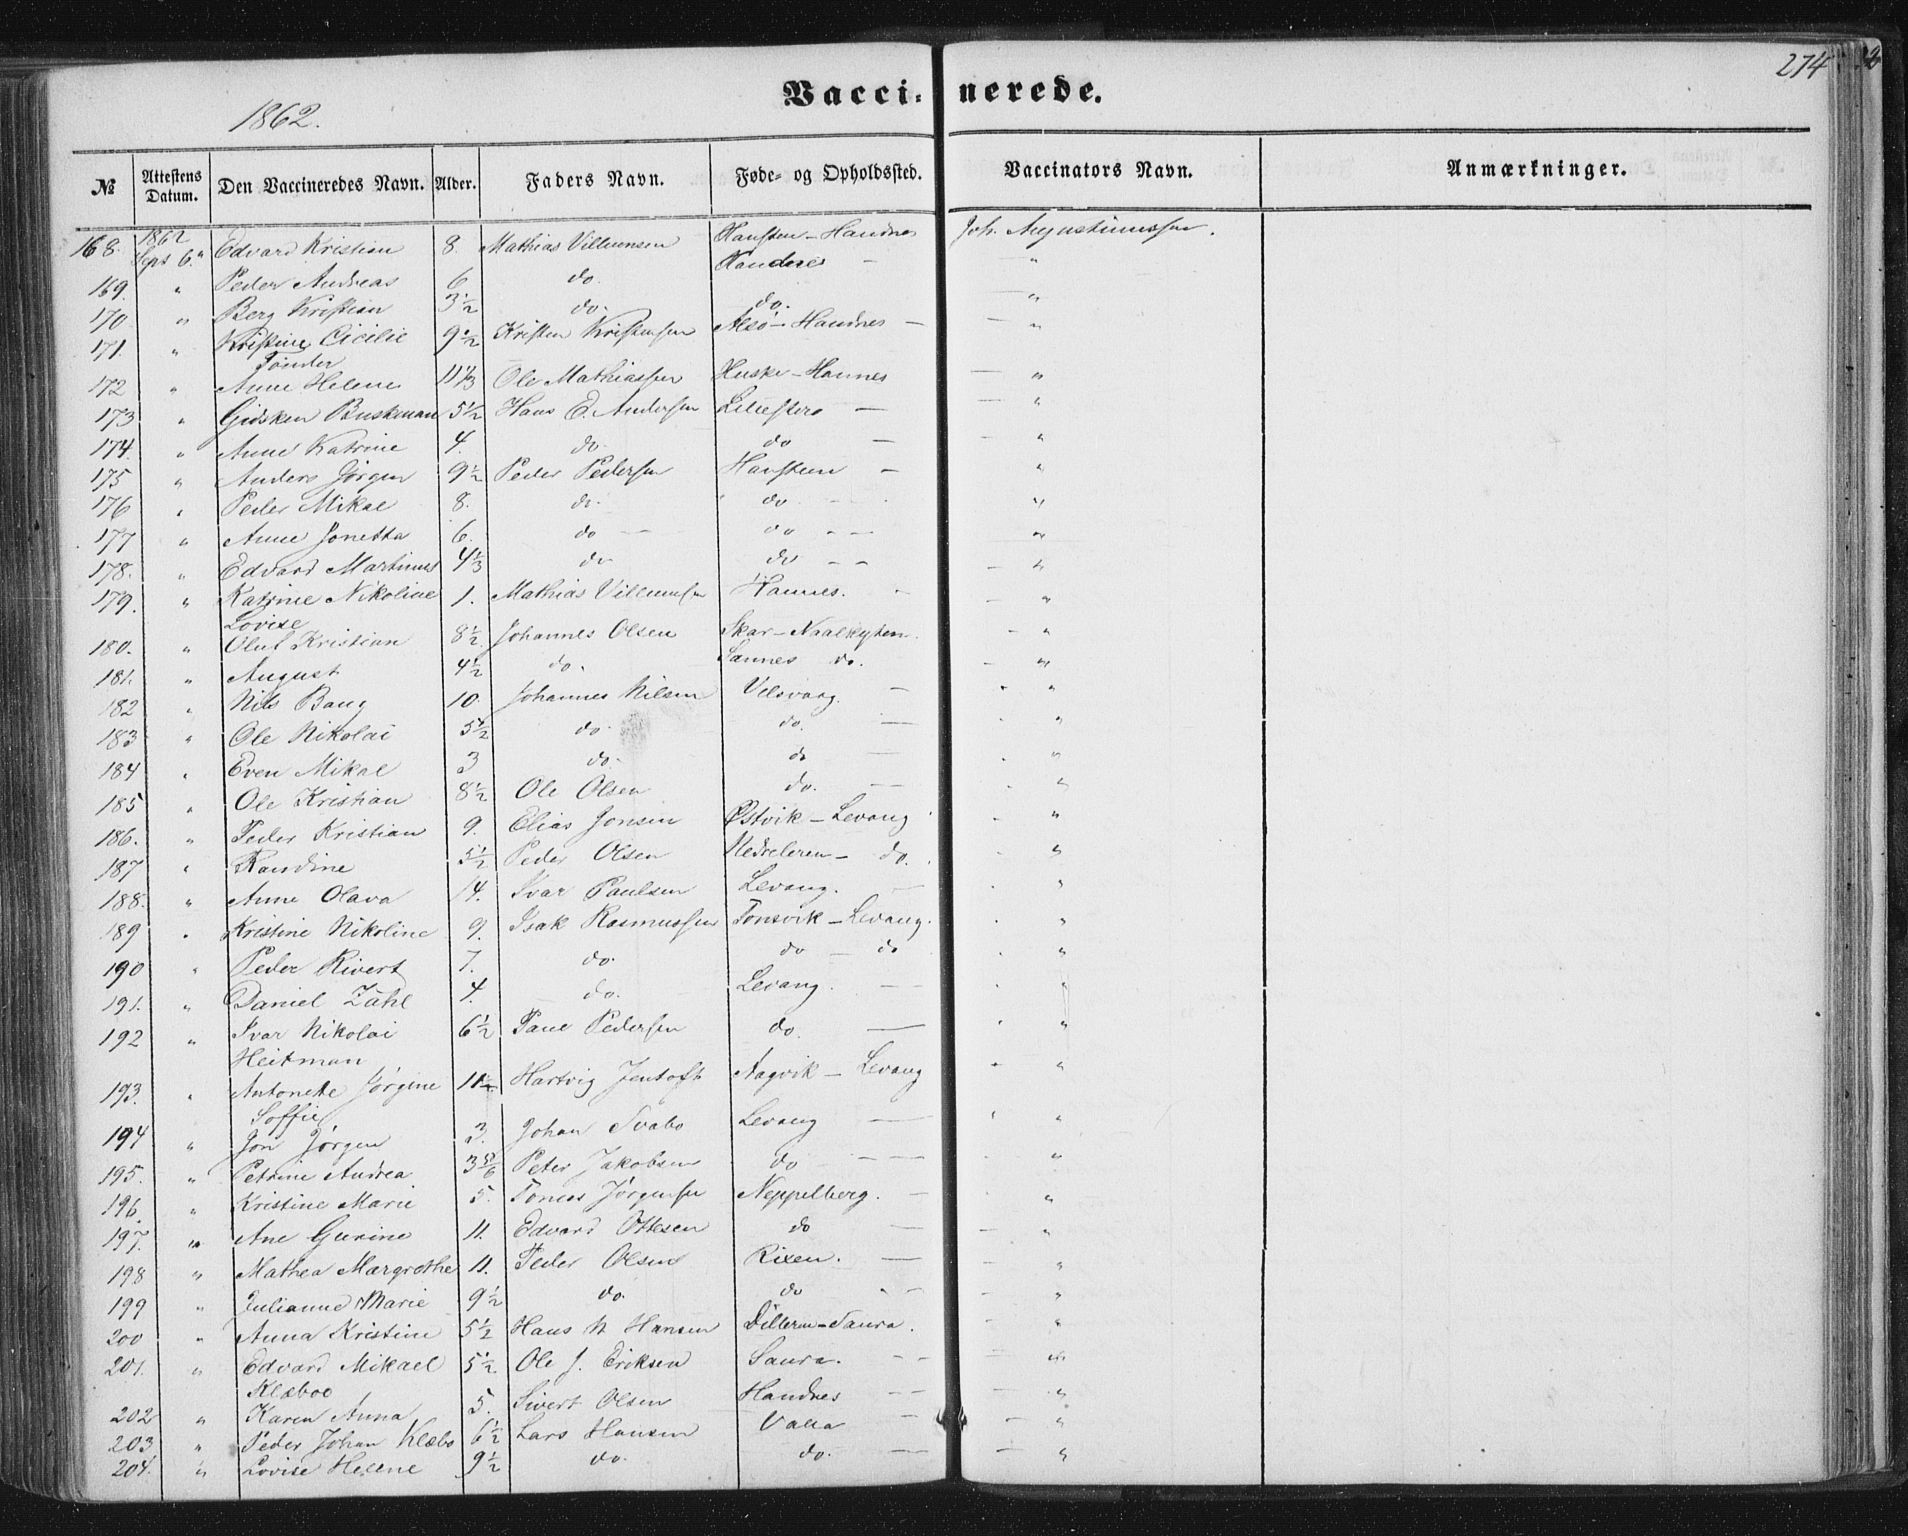 274
1862.
Vaccinerede.
№ Attestens Datum. Den Vaccineredes Navn. Alder. Faders Navn. Føde- og Opholdssted. Vaccinators Navn. Anmærkninger.
168. 1862 Sept 6. Edvard Kristian 8. Mathias Villumsen Handnes Joh. Augustinussen.
169. " Peder Andreas 6 do. Handnes — "
170 " Berg Kristian 3½ do. do. — "
171. " Kristine Cicilie Tønder 9½ Kristen Kristensen Alsø - Handnes — "
172 " Anne Helene 11⅓ Ole Mathiassen Huske - Hannes — "
173 " Gidsken Buskman 5½ Hans E. Andersen — "
174. " Anne Katrine 4. do. do — "
175 " Anders Jørgen 9½ Peder Pedersen Hansteen — "
176 " Peder Mikal 8. do. do "
177 " Anne Jonetta 6. do do "
178. " Edvard Martinus 4⅓ do do "
179. " Katrine Nikoline Lovise 1. Mathias Villumsen Hannes. — "
180. " Oluf Kristian 8½ Johannes Olsen Skar - — "
181. " August 4½ do. Sannes do. — "
182 " Nils Bang 10. Johannes Nilsen Velsvaag. — "
183 " Ole Nikolai 5½ do. do. — "
184 " Even Mikal 3 do. do — "
185 " Ole Kristian 8½ Ole Olsen do. — "
186. " Peder Kristian 9. Elias Jonsen Østvik - Levang "
187 " Randine 5½ Peder Olsen Nedreleren - do. "
188. " Anne Olava 14. Ivar Paulsen Levang. — "
189 " Kristine Nikoline 9. Isak Rasmussen Tonsvik - Levang. "
190 " Peder Rivert 7. do. do — do "
191. " Daniel Zahl 4. do. Levang. — "
192 " Ivar Nikolai Heitman 6½ Pane Pedersen do — "
193. " Antonette Jørgine Soffie 11½ Hartvig Jentoft Aagvik - Levang "
194 " Jon Jørgen 3. Johan Svabo Levang — "
195. " Petrine Andrea 3⅚ Peter Jakobsen do — "
196. " Kristine Marie 5. Tomas Jørgensen Neppelberg. — "
197. " Ane Gurine 11. Edvard Ottesen do — "
198 " Mathea Margrethe 11. Peder Olsen Rixen. — "
199 " Julianne Marie 9½ do. do — "
200 " Anna Kristine 5½ Hans N Hansen Dilleren - Saura. "
201. " Edvard Mikael Klæboe 5½ Ole J. Eriksen Saura. — "
202 " Karen Anna 5. Sivert Olsen Handnes — "
203 " Peder Johan Klæbo 6½ Lars Hansen Valla — "
204. " Lovise Helene 9½ do. do. — "